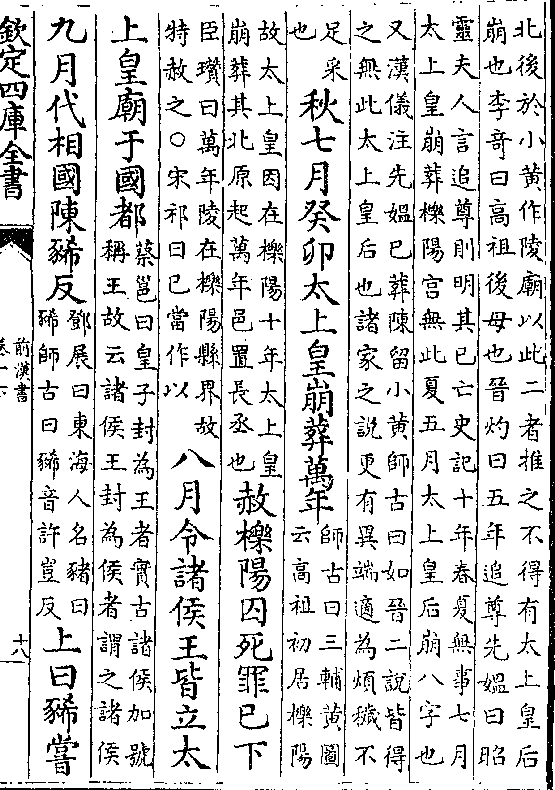 北後於小黄作陵廟以此二者推之不得有太上皇后
崩也李竒曰高祖後母也晉灼曰五年追尊先媪曰昭
靈夫人言追尊則明其已亡史記十年春夏無事七月
太上皇崩葬櫟陽宫無此夏五月太上皇后崩八字也
又漢儀注先媪已葬陳留小黄師古曰如晉二說皆得
之無此太上皇后也諸家之說更有異端適為煩穢不
足采
也
秋七月癸卯太上皇崩葬萬年
師古曰三輔黄圖
云高祖初居櫟陽
故太上皇因在櫟陽十年太上皇
崩葬其北原起萬年邑置長丞也
赦櫟陽囚死罪已下
臣瓚曰萬年陵在櫟陽縣界故
特赦之○宋祁曰已當作以
八月令諸侯王皆立太
上皇廟于國都
蔡邕曰皇子封為王者實古諸侯加號
稱王故云諸侯王封為侯者謂之諸侯
九月代相國陳豨反
鄧展曰東海人名豬曰
豨師古曰豨音許豈反
上曰豨嘗
欽定四庫全書
前漢書
十八